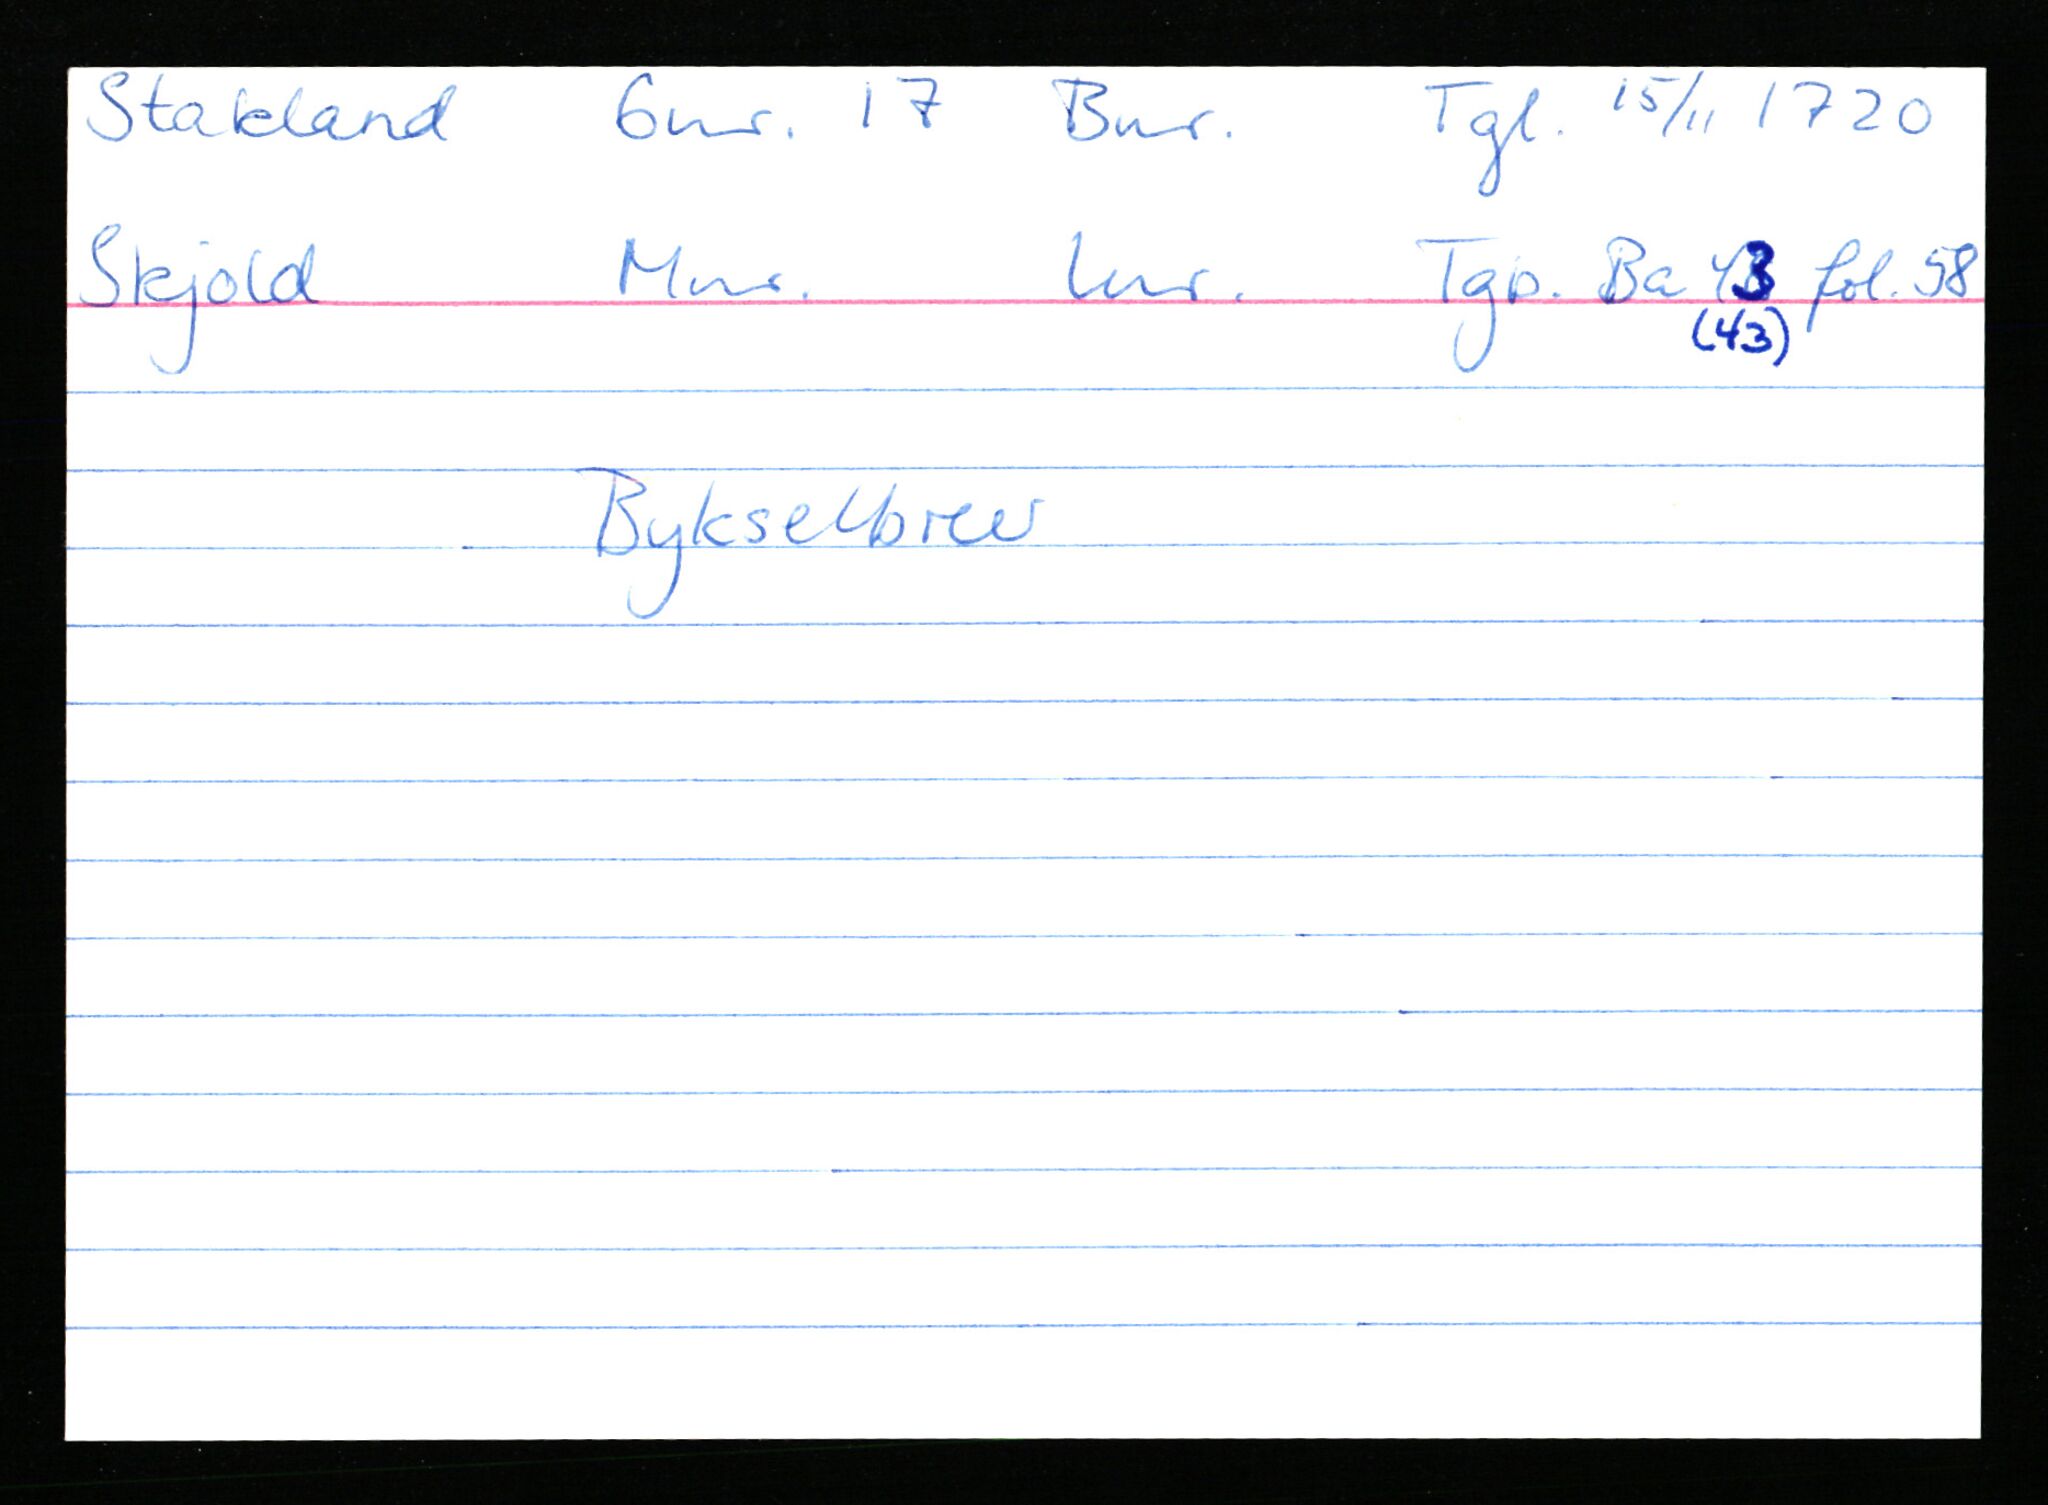 Stakland Gnr. 17 Bnr. Tgl. 15/11 1720
Skjold Mnr. Lnr. Tgp. Ba 43 fol. 58
(43)
Bykselbrev